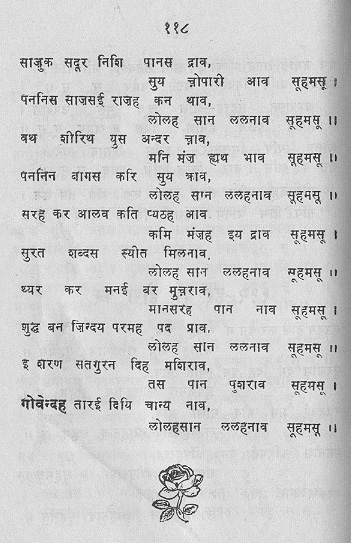 ११८
साज़ुक सदूर निशि पानस द्राव,
सुय च़ोपारी आव सूहमसू ।
पननिस साजसई राज़ह कन थाव,
लोलह सान ललनाव सूहमसू ।।
वथ शोरिथ युस अन्दर च़ाव,
मनि मंज ह्यथ भाव सूहमसू ।
पननिन वागस करि सुय क्राव,
लोलह सान ललहनाव सूहमसू ।।
सरह कर आलव कति प्यठह आव
कमि मंजह इय द्राव सूहमसू ।
सुरत शब्दस स्यीत मिलनाव,
लोलह सान ललहनाव सूहमसू ।।
थ्यर कर मनई बर मुच़राव,
मानसरह पान नाव सूहमसू ।
शुद्ध बन ज़िन्दय परमह पद प्राव,
लोलह सान ललनाव सूहमसू ।।
इ शरण सतगुरन दिह मशिराव,
तस पान पुशराव सूहमसू ।
गोवेन्दह तारई दियि चान्य नाव,
लोलहसान ललहनाव सूहमसू ।।